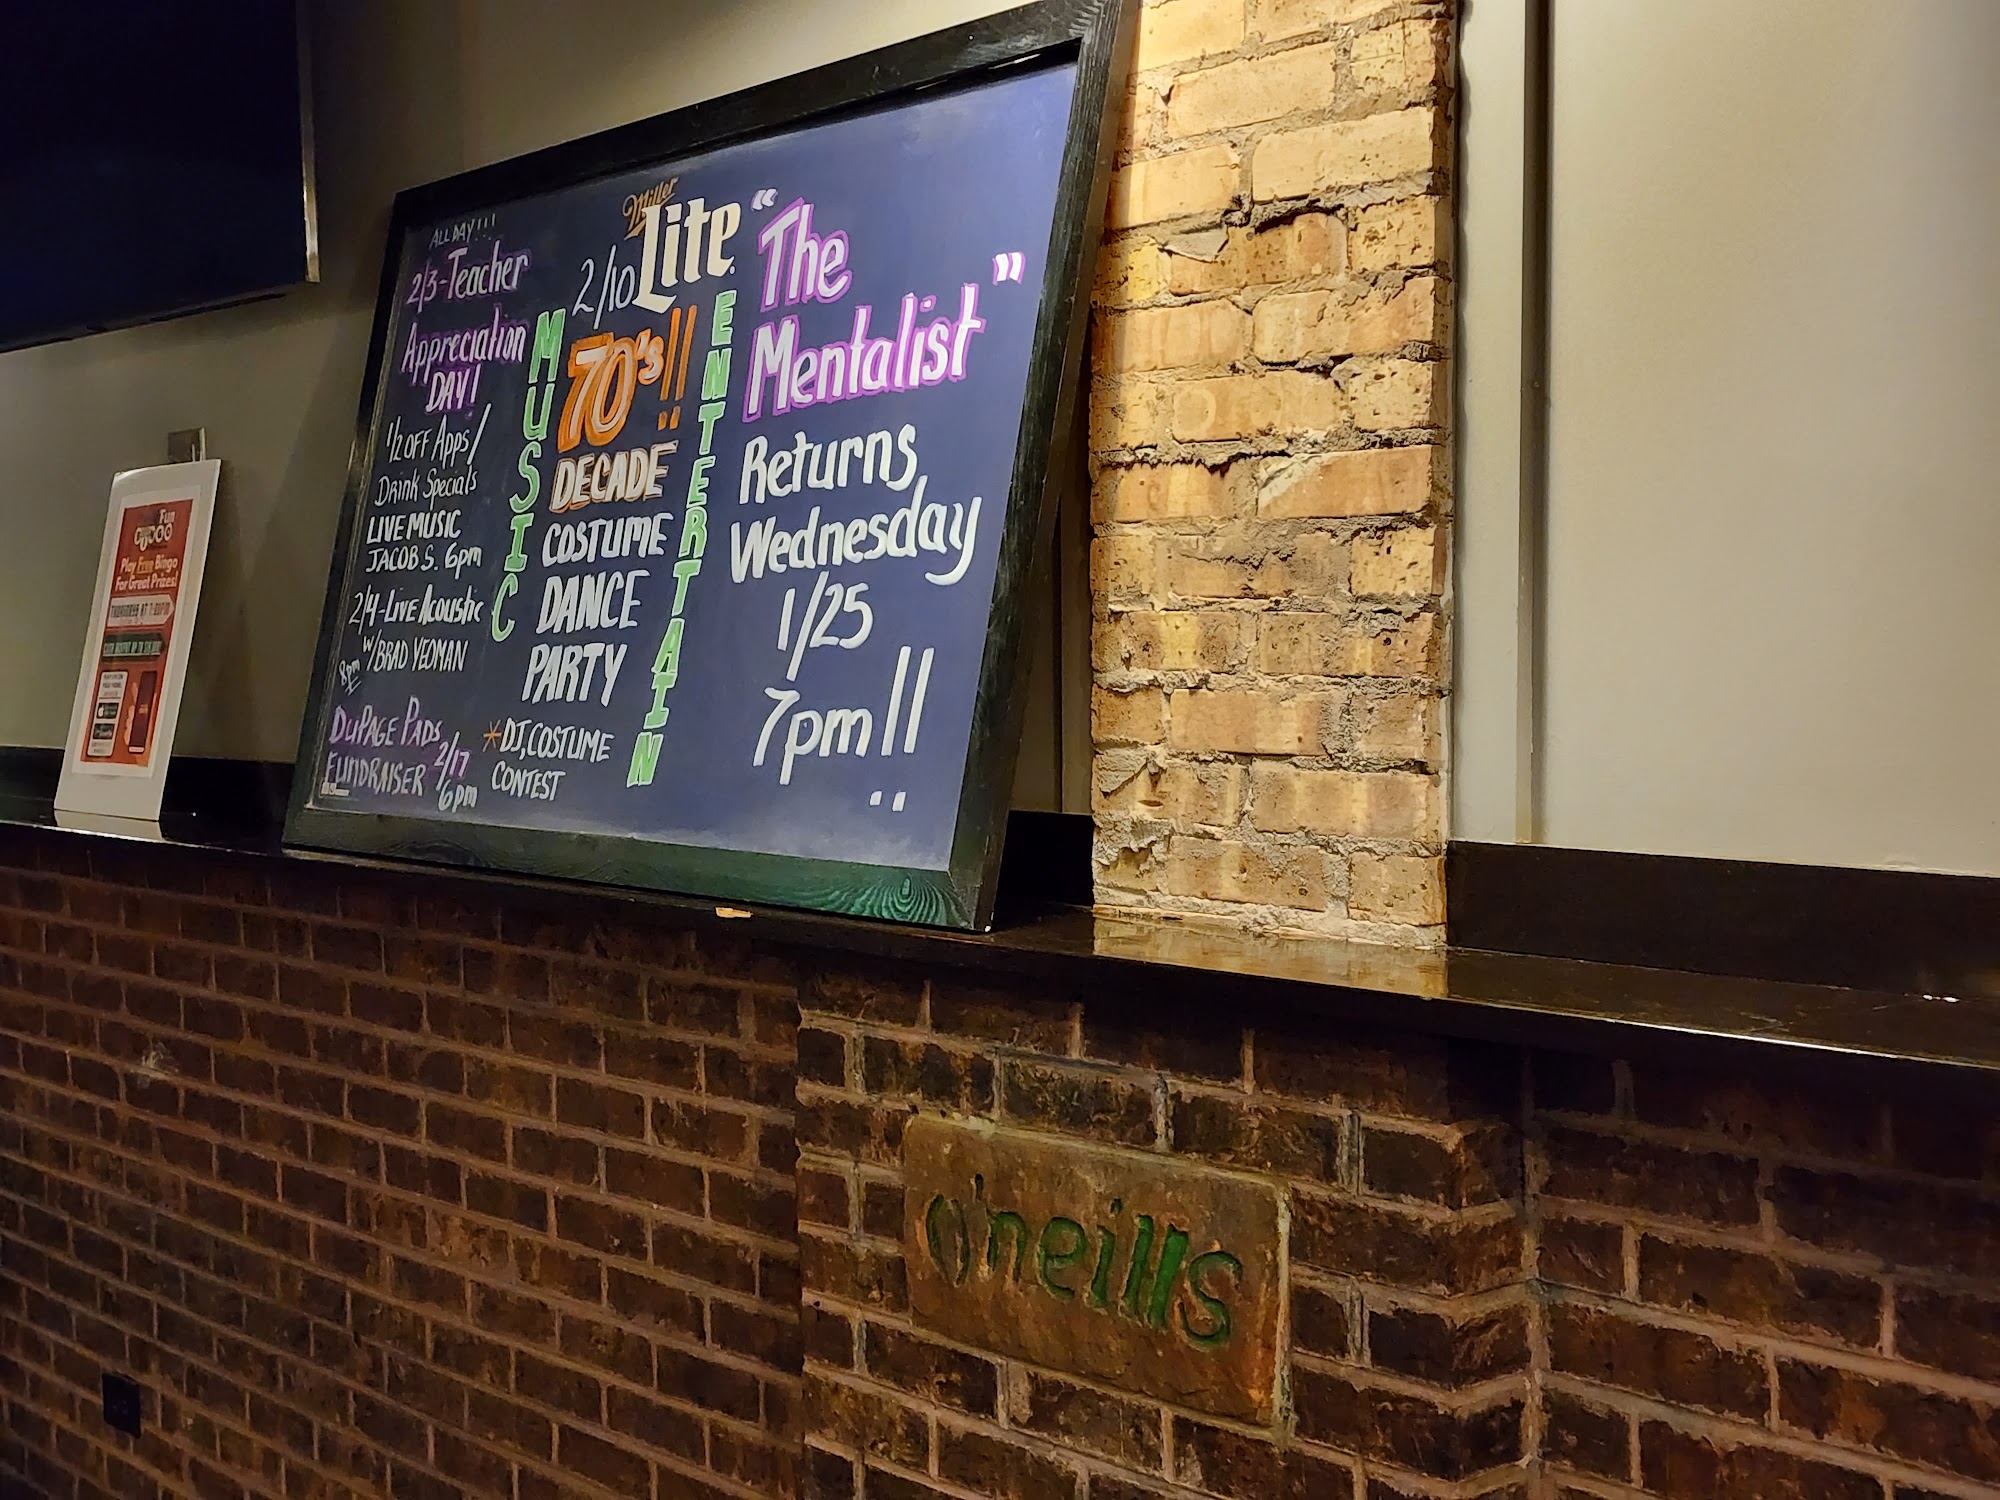 ALL DAY!!!
2/3-Teacher
Appreciation
DAY!
1/2 OFF Apps/
Drink Specials
LIVE MUSIC
JACOB S. 6pm
2/4-Live Acoustic
w/BRAD YEOMAN
8pm
DuPAGE PADS
FUNDRAISER 2/17
6pm
MUSIC
Miller
Lite
2/10
70's!!
DECADE
COSTUME
DANCE
PARTY
*DJ, COSTUME
CONTEST
ENTERTAIN
"The
Mentalist"
Returns
Wednesday
1/25
7pm!!
Fun
Play Free Bingo
For Great Prizes!
THURSDAYS AT
o'neills